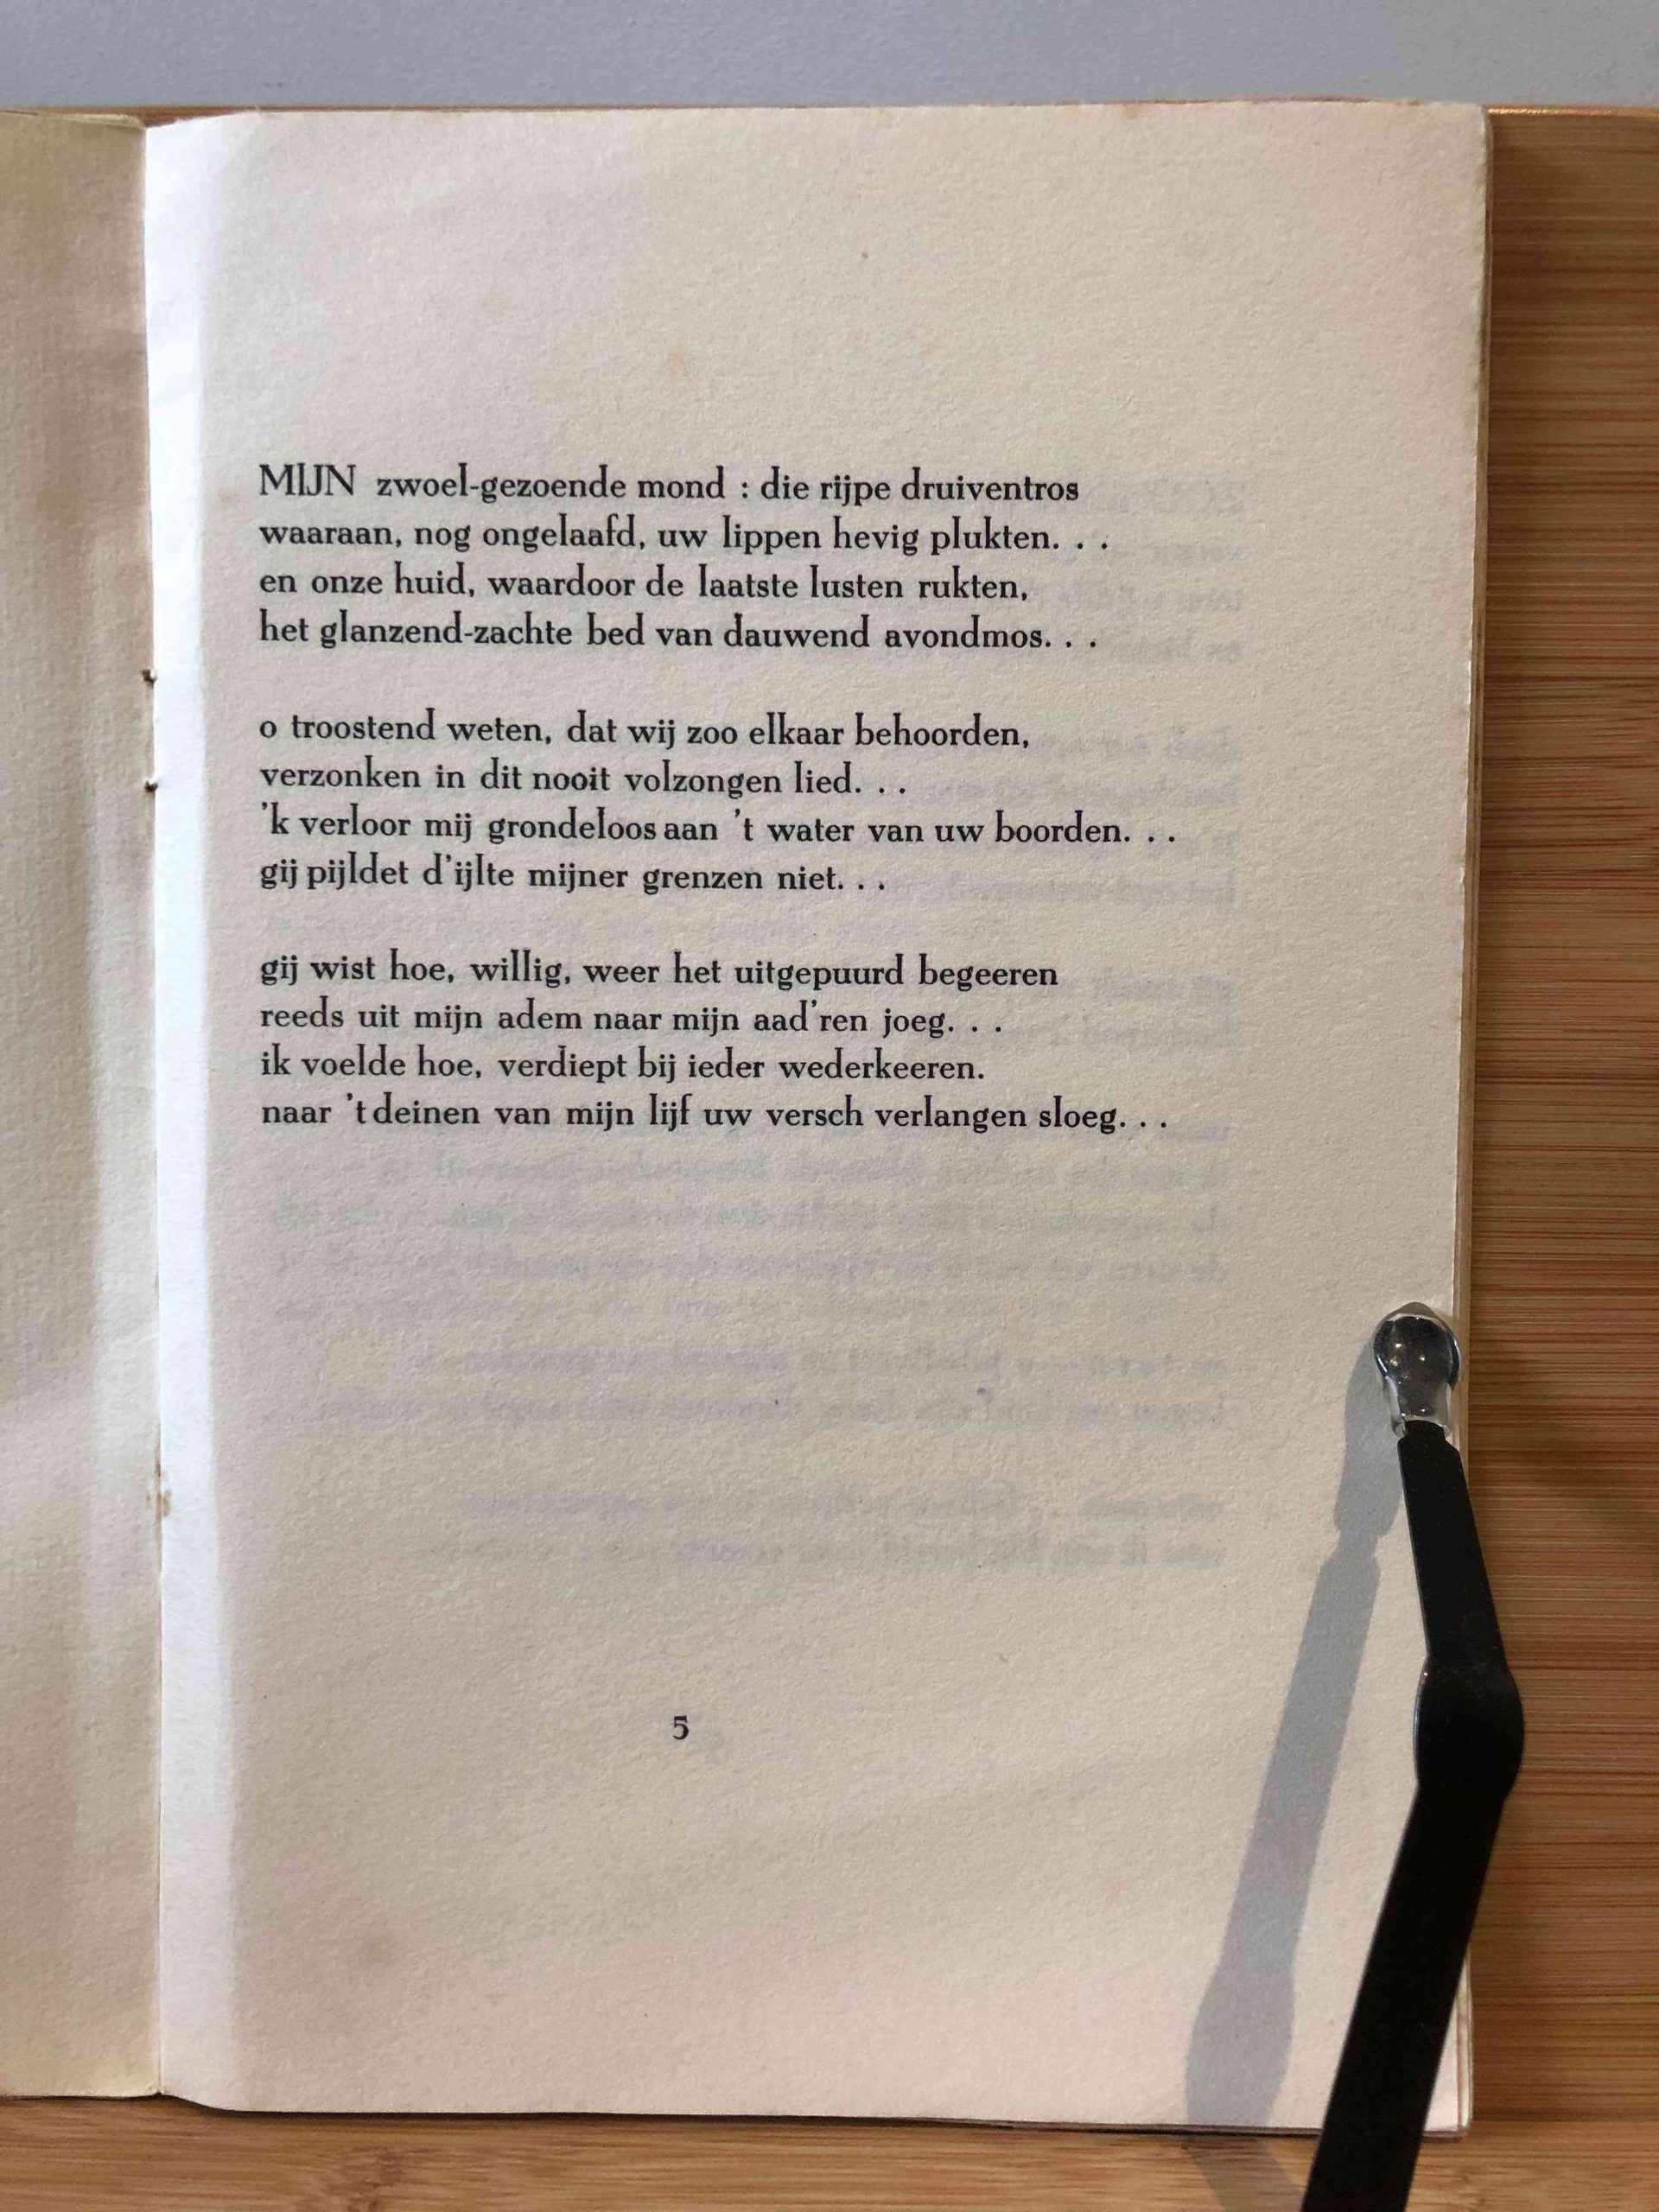 MIJN zwoel-gezoende mond : die rijpe druiventros
waaraan, nog ongelaafd, uw lippen hevig plukten. . .
en onze huid, waardoor de laatste lusten rukten,
het glanzend-zachte bed van dauwend avondmos. . .
o troostend weten, dat wij zoo elkaar behoorden,
verzonken in dit nooit volzongen lied. . .
'k verloor mij grondeloos aan 't water van uw boorden. . .
gij pijldet d'ijlte mijner grenzen niet. . .
gij wist hoe, willig, weer het uitgepuurd begeeren
reeds uit mijn adem naar mijn aad'ren joeg. . .
ik voelde hoe, verdiept bij ieder wederkeeren.
naar 't deinen van mijn lijf uw versch verlangen sloeg. . .
5